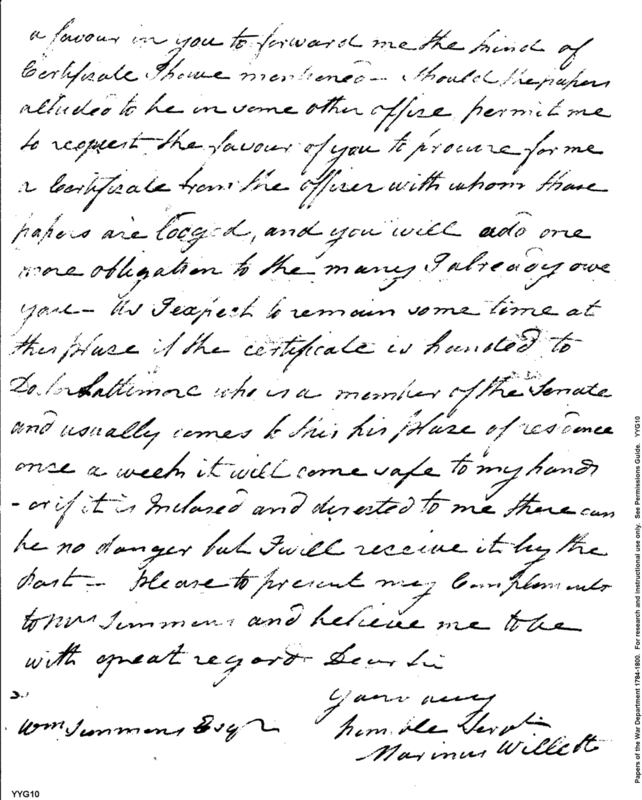 a favour in you to forward me the kind of
Certificate I have mentioned – Should the papers
alluded to be in some other office permit me
to request the favour of you to procure for me
a Certificate from the officer with whom those
papers are lodged, and you will add one
more obligation to the many I already owe
you – As I expect to remain some time at
this place if the certificate is handed to
Doctor Lattimore who is a member of the Senate
and usually comes to this his place of residence
once a week it will come safe to my hands
– or if it is Inclosed and directed to me there can
be no danger but I will receive it by the
Post – Please to present my Complements
to Mrs Simmons and believe me to be
with great regard Dear Sir
your very
humble Servt
Marinus Willett
Wm Simmons Esqr
YYG10
Papers of the War Department 1784-1800. For research and instructional use only. See Permissions Guide. YYG10